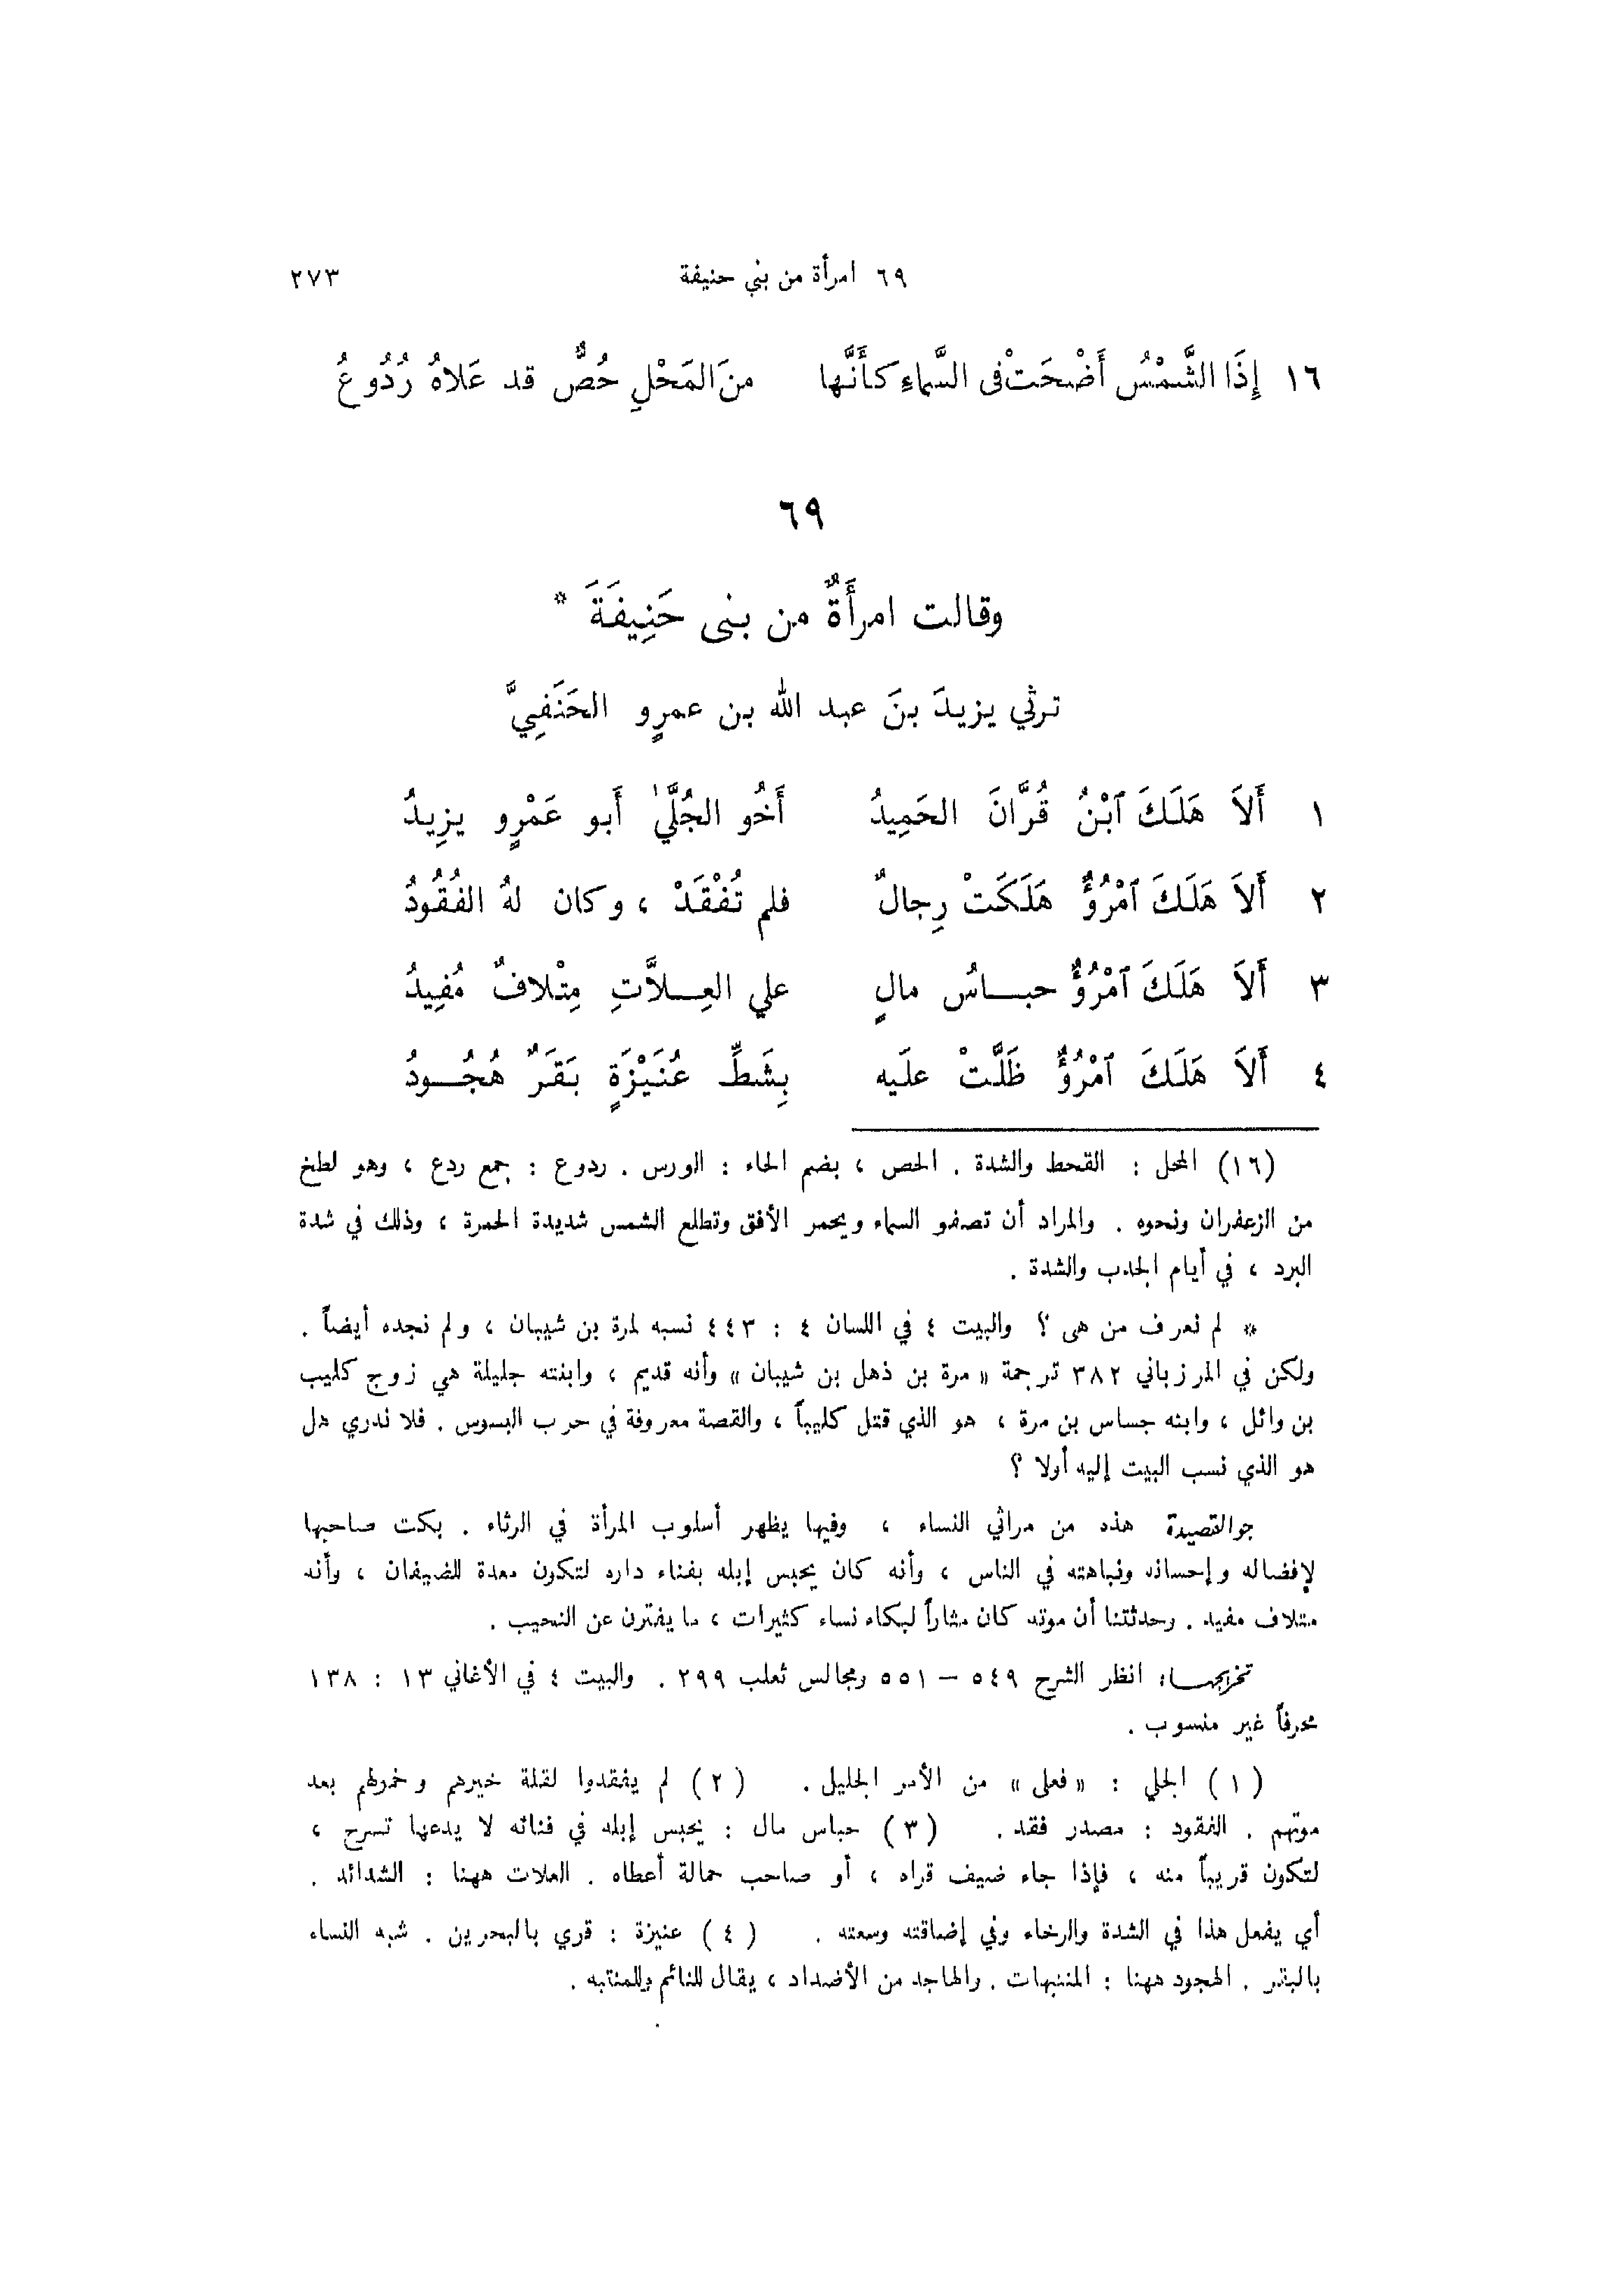 ٦٩ امرأة من بني حنيفة ٢٧٣
١٦ إِذَا الشَّمْسُ أَضْحَتْ فى السَّماءِ كأَنَّها منَ المَحْلِ حُصٌّ قد عَلاهُ رُدُوعُ
٦٩
وقالت امرأَةٌ من بنى حَنِيفَةَ *
ترثي يزيدَ بنَ عبد الله بن عمرٍو الحَنَفِيَّ
١ أَلاَ هَلَكَ ٱبْنُ قُرَّانَ الحَمِيدُ أَخُو الجُلَّىٰ أَبو عَمْرٍو يزِيدُ
٢ أَلاَ هَلَكَ ٱمْرُؤٌ هَلَكَتْ رِجالٌ فلم تُفْقَدْ ، وكان لهُ الفُقُودُ
٣ أَلاَ هَلَكَ ٱمْرُؤٌ حبــاسُ مالٍ علي العِــلاَّتِ مِتْلافٌ مُفِيدُ
٤ أَلاَ هَلَكَ ٱمْرُؤٌ ظَلَّتْ علَيه بِشَطِّ عُنَيْزَةٍ بَقَرٌ هُجُــودُ
(١٦) المحل : القحط والشدة . الحص ، بضم الحاء : الورس . ردوع : جمع ردع ، وهو لطخ
من الزعفران ونحوه . والمراد أن تصفو السماء ويحمر الأفق وتطلع الشمس شديدة الحمرة ، وذلك في شدة
البرد ، في أيام الجدب والشدة .
* لم نعرف من هى ؟ والبيت ٤ في اللسان ٤ : ٤٤٣ نسبه لمرة بن شيبان ، ولم نجده أيضاً .
ولكن في المرزباني ٣٨٢ ترجمة « مرة بن ذهل بن شيبان » وأنه قديم ، وابنته جليلة هي زوج كليب
بن وائل ، وابنه جساس بن مرة ، هو الذي قتل كليباً ، والقصة معروفة في حرب البسوس . فلا ندري هل
هو الذي نسب البيت إليه أولا ؟
جو القصيدة هذه من مراثي النساء ، وفيها يظهر أسلوب المرأة في الرثاء . بكت صاحبها
لإفضاله وإحسانه ونباهته في الناس ، وأنه كان يحبس إبله بفناء داره لتكون معدة للضيفان ، وأنه
متلاف مفيد . وحدثتنا أن موته كان مثاراً لبكاء نساء كثيرات ، ما يفترن عن النحيب .
تخريجهــا: انظر الشرح ٥٤٩ – ٥٥١ ومجالس ثعلب ٢٩٩ . والبيت ٤ في الأغاني ١٣ : ١٣٨
محرفاً غير منسوب .
(١) الجلي : « فعلى » من الأمر الجليل . (٢) لم يفقدوا لقلة خيرهم وخمولهم بعد
موتهم . الفقود : مصدر فقد . (٣) حباس مال : يحبس إبله في فنائه لا يدعها تسرح ،
لتكون قريباً منه ، فإذا جاء ضيف قراه ، أو صاحب حمالة أعطاه . العلات ههنا : الشدائد .
أي يفعل هذا في الشدة والرخاء وفي إضاقته وسعته . (٤) عنيزة : قري بالبحرين . شبه النساء
بالبقر . الهجود ههنا : المنتبهات . والهاجد من الأضداد ، يقال للنائم وللمنتبه .